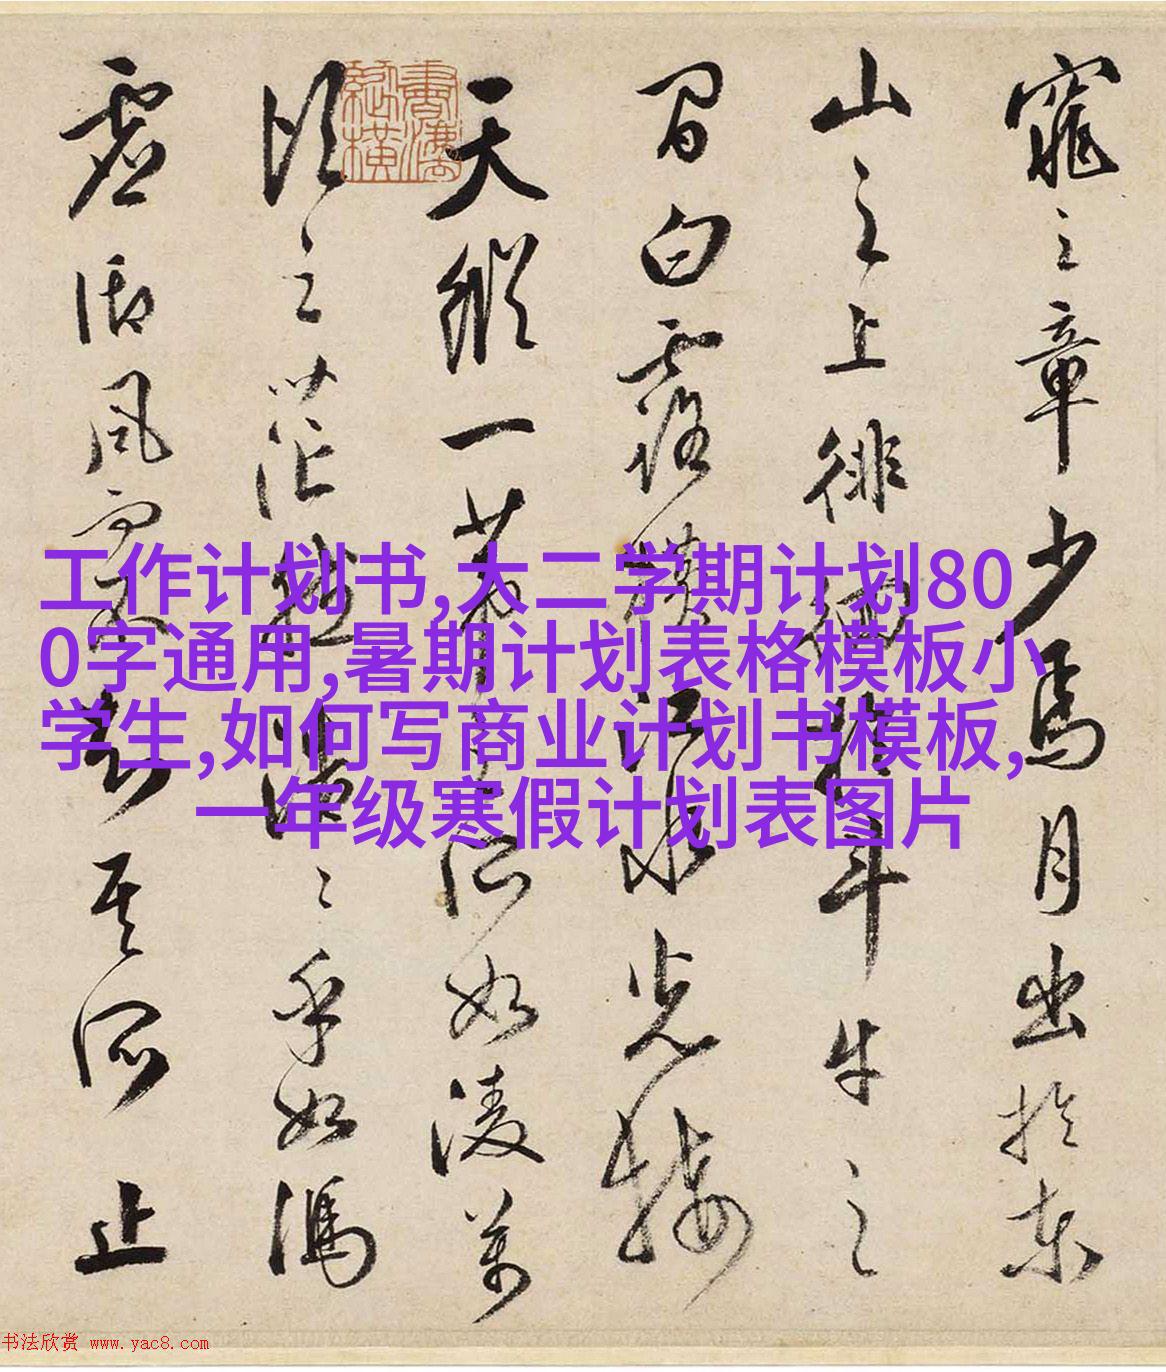 窕之章少焉月出於東
山之上徘徊於斗牛之
間白露橫江水光接
天縱一葦之所如凌萬
頃之茫然浩〻乎如馮
虛御風而不知其所止
工作计划书,大二学期计划80
0字通用,暑期计划表格模板小
学生,如何写商业计划书模板,
一年级寒假计划表图片
书法欣赏 www.yac8.com